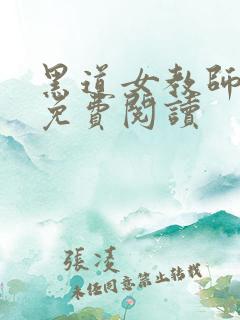 黑道女教師
免費閱讀
張淩
未經同意禁止轉載